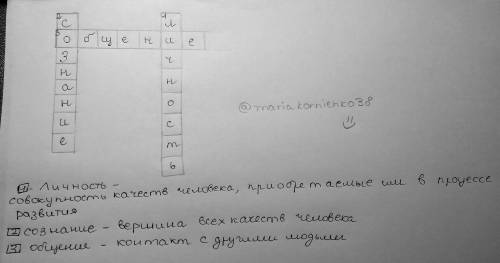 сознание
общение
личность
@mariakornienko38
Личность -
совокупность качеств человека, приобретаемые им в процессе
развития
сознание - вершина всех качеств человека
3 общение - контакт с другими людьми